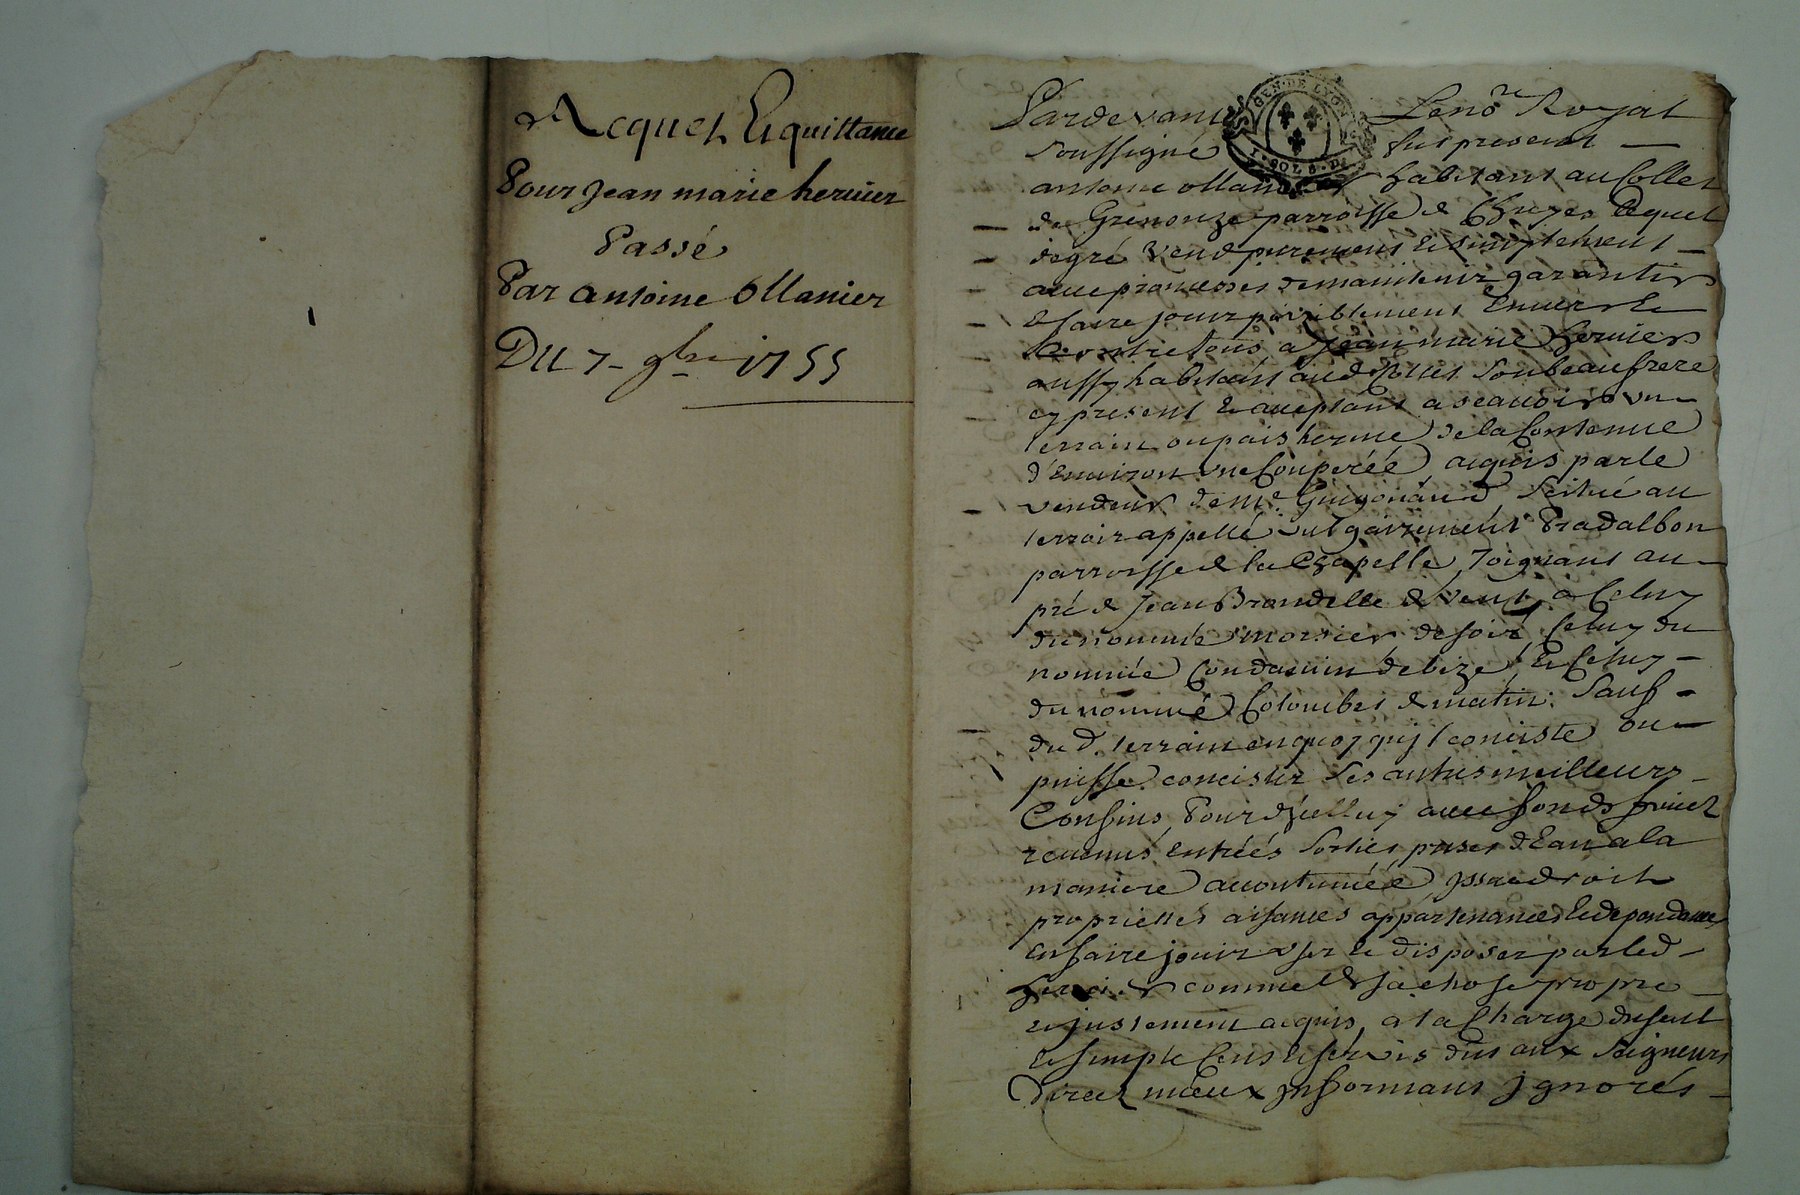 Acquet Et quittance
Pour jean marie hernier
Passé
Par antoine Ollanier
DU 7 9bre 1755
GEN. DE LYON
1. SOL 8. D.
Pardevant Le no.re Royal
soussigné fut present
antoine ollanier habitant au Collet
de parroisse de Lequel
degré vend purement et simplement
avec promesses de maintenir garantir
et faire jouir paisiblement Envers Et
Contre tous, a Jean marie hernier
aussy habitant aud. Collet son beaufrere
cy present et acceptant a scavoir un
terrain ou pais herme de la Contenue
d'Environ une Couperéé acquis par le
vendeur de Me. Guigonand Scitué au
terroir appellé vulgairement Pradalbon
parroisse de la Chapelle, Joignant au
pré de Jean Brondelle de vent, a Celuy
du nommé morier de soir, Celuy du
nommé Condamin de bize, Et Celuy
du nommé Colombet de matin: Sauf
dud. terrain en quoy qu'il conciste ou
puisse concister ses autres meilleurs
Confins, Pour d'jcelluy avec fonds fruict
revenus, entréés Sorties, prises d'Eau a la
maniere accoutuméé, droits
proprietés aisances appartenances Et dependances
En faire jouir user Et disposer par led.
hernier comme de sa chose propre
et justement acquis, a la Charge du seul
Et simple Cens Et servis dus aux Seigneurs
Direct mieux jnformans jgnorés